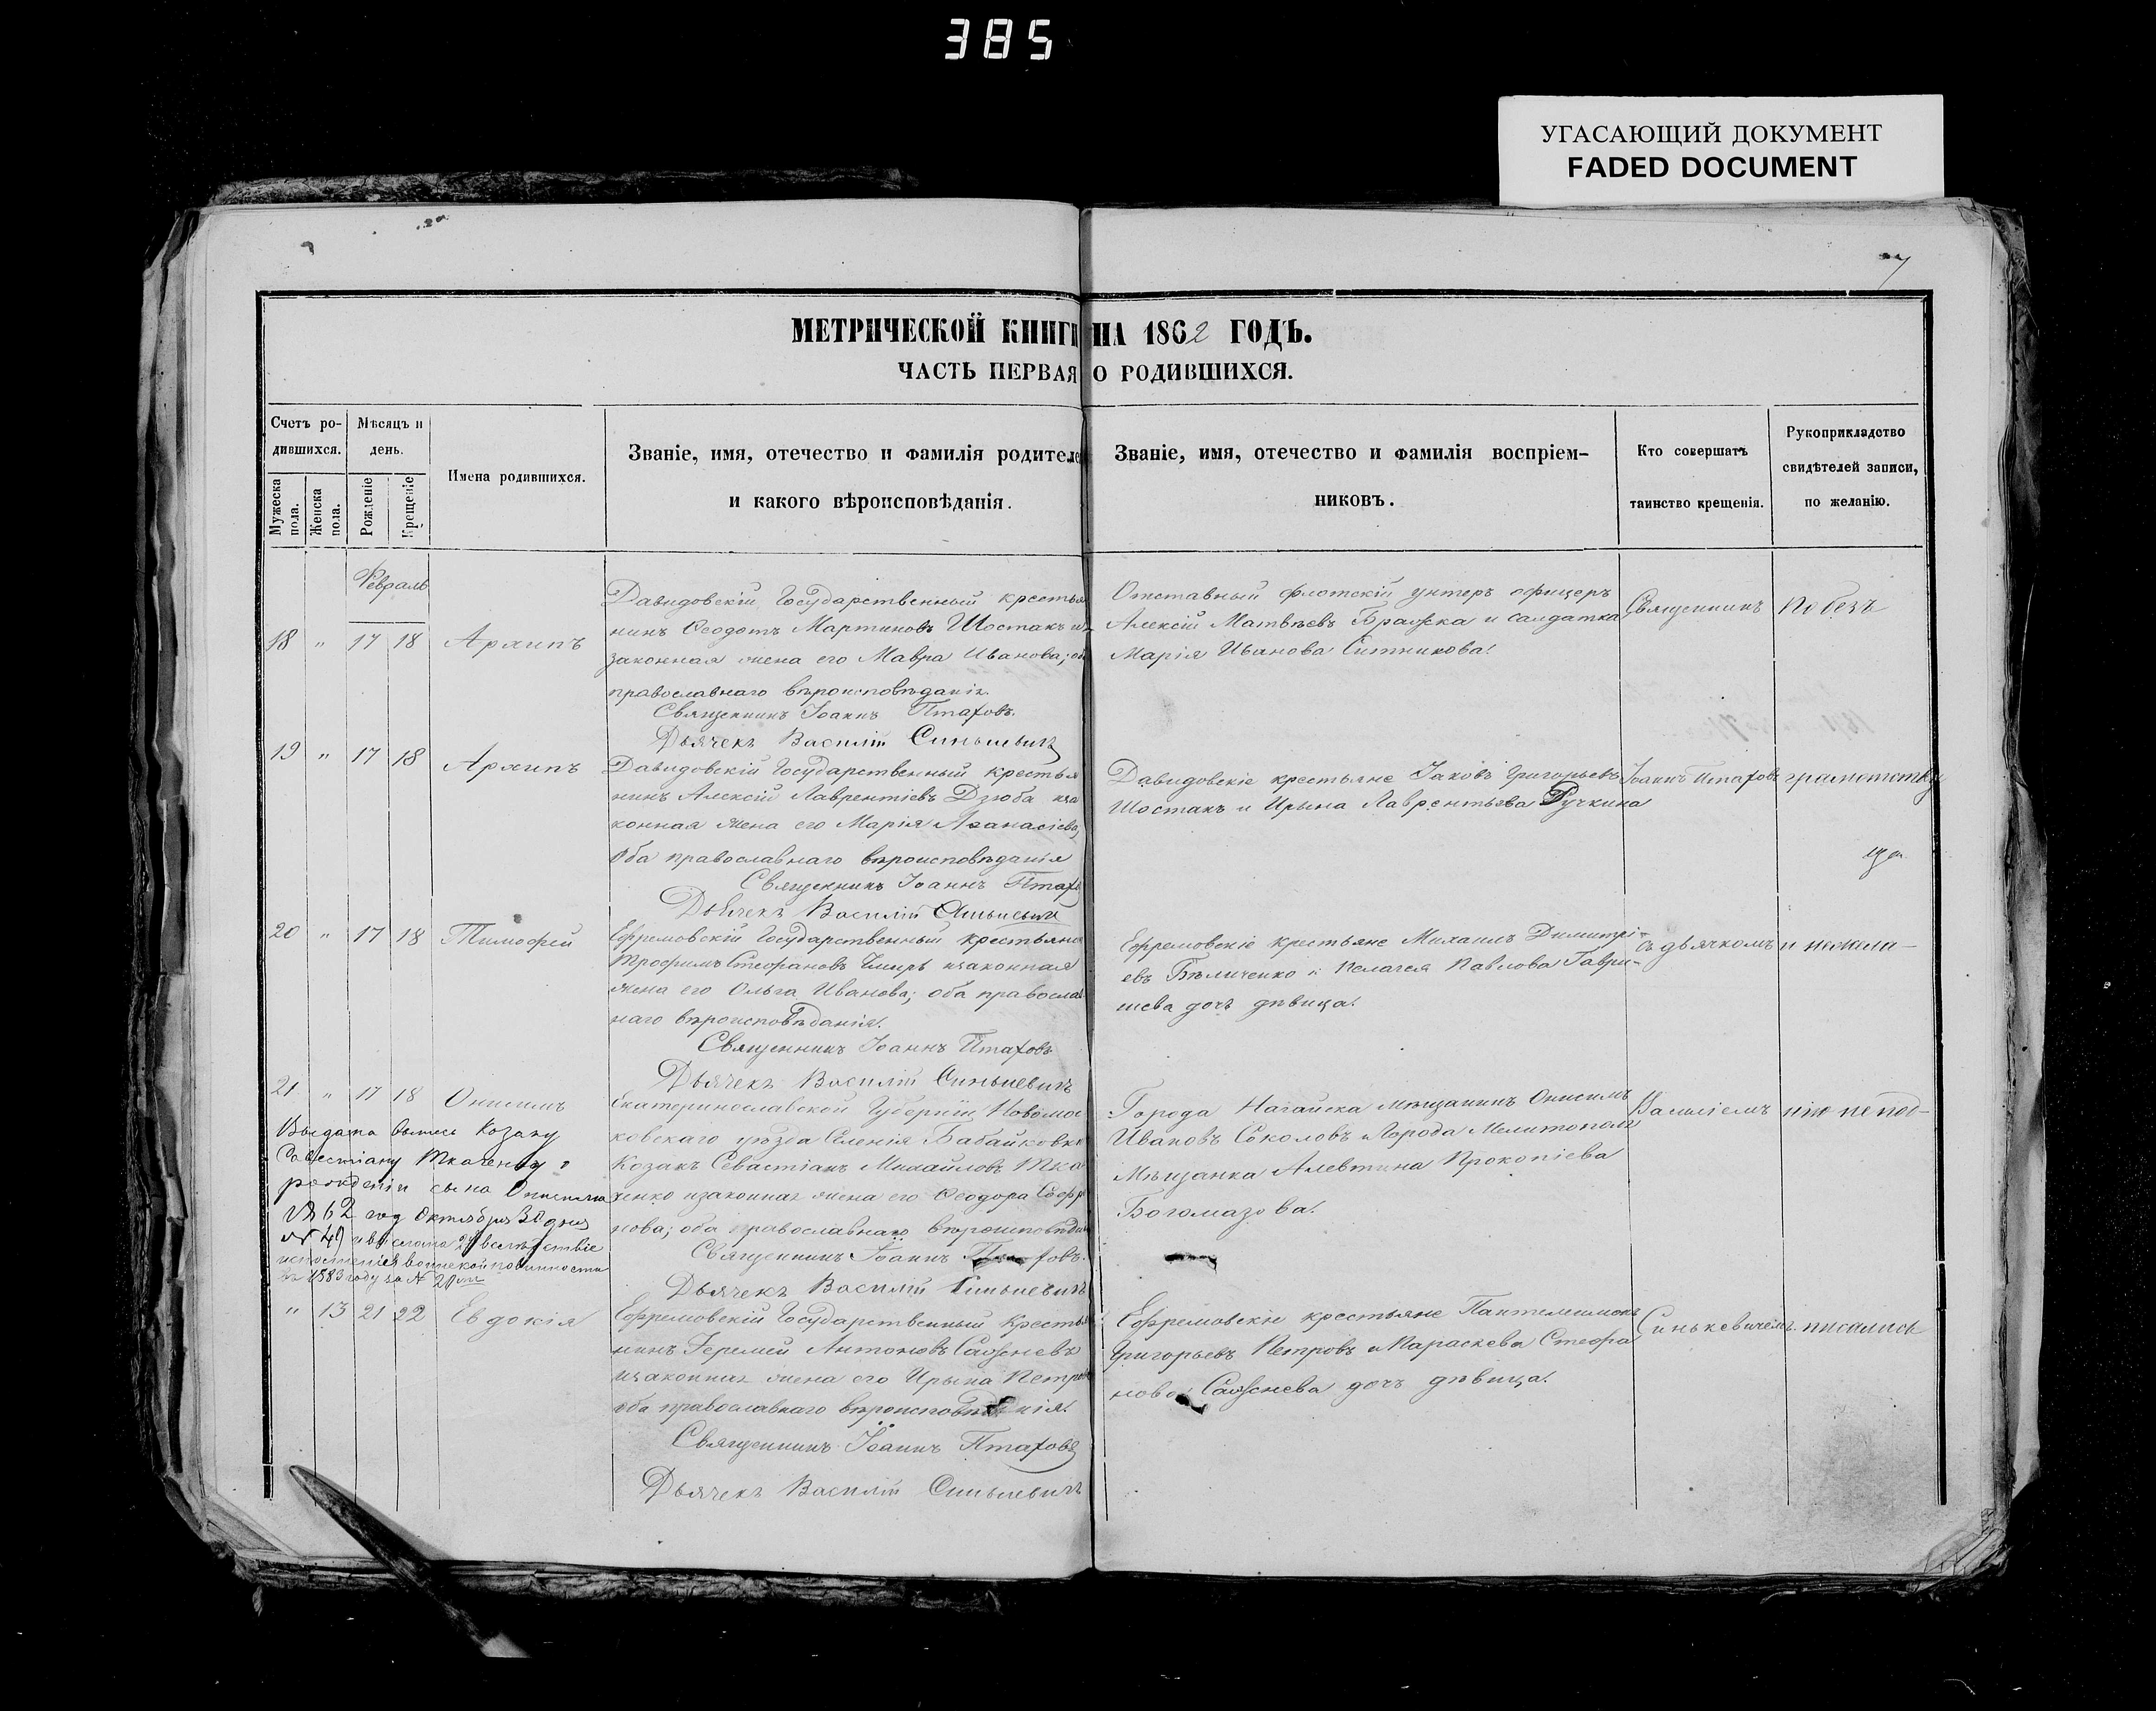 385
УГАСАЮЩИЙ ДОКУМЕНТ
FADED DOCUMENT
7
МЕТРИЧЕСКОЙ КНИГИ НА 1862 ГОДЪ.
ЧАСТЬ ПЕРВАЯ О РОДИВШИХСЯ.
Счетъ ро-
дившихся.
Мужеска
пола.
Женска
пола.
Мѣсяцъ и
день.
Рожденіе
Крещеніе
Имена родившихся.
Званіе, имя, отечество и фамилія родителе
и какого вѣроисповѣданія.
Званіе, имя, отечество и фамилія воспріем-
никовъ.
Кто совершатъ
таинство крещенія.
Рукоприкладство
свидѣтелей записи,
по желанію.
Февраль
18 " 17 18 Архипъ
Давидовскій Государственный крестья
нинъ Ѳеодотъ Мартиновъ Шостакъ и
законная жена его Мавра Иванова; об
православнаго вѣроисповѣданія.
Священникъ Іоаннъ Птаховъ.
Дьячекъ Василій Синькевичъ
Отставный флотскій унтеръ офицеръ
Алексій Матвѣевъ Бражка и салдатка
Марія Иванова Ситникова.
Священникъ
По безъ
19 " 17 18 Архипъ
Давидовскій Государственный крестья
нинъ Алексій Лаврентіевъ Дзюба иза
конная жена его Марія Аѳанасіева
Оба православнаго вѣроисповѣданія
Священникъ Іоаннъ Птахов
Дьячекъ Василій Синькевич
Давидовскіе крестьяне Іаковъ Григорьевъ
Шостакъ и Ирына Лаврентьева Ручкина
Іоаннъ Птаховъ
грамотству
20 " 17 18 Тимофей
Ефремовскій Государственный крестьянин
Трофимъ Стефановъ Чмиръ изаконная
жена его Ольга Иванова; оба православ
наго вѣроисповѣданія.
Священникъ Іоаннъ Птаховъ
Дьячекъ Василій Синькевичъ
Ефремовскіе крестьяне Михаилъ Димитрі-
евъ Бѣличенко и Пелагея Павлова Гаври-
шева дочь дѣвица.
съ дьячкомъ
и нежела-
21 " 17 18 Онисимъ
Екатеринославской Губерніи, Новомос
ковскаго уѣзда Селенія Бабайковки
Козакъ Севастіанъ Михайловъ Тка
ченко изаконная жена его Ѳеодора Софро
нова; оба православнаго вѣроисповѣдан
Священникъ Іоаннъ Птаховъ.
Дьячекъ Василій Синькевичъ
Города Нагайска мѣщанинъ Онисимъ
Ивановъ Соколовъ и Города Мелитополя
Мѣщанка Алевтина Прокопіева
Богомазова.
Василіемъ
нію не под-
Выдана выпись Козаку
Севестіану Ткаченку о
рожденіи сына Онисима
1862 год Октября 30 дня
" 13 21 22 Евдокія
Ефремовскій Государственный Крестья
нинъ Іеремей Антоновъ Саженевъ
изаконная жена его Ирына Петро
оба православнаго вѣроисповѣданія.
Священникъ Іоаннъ Птаховъ
Дьячекъ Василій Синькевичъ
Ефремовскіе крестьяне Пантелеимонъ
Григорьевъ Петровъ и Параскева Стефа
нова Саженева дочь дѣвица.
Синькевичемъ.
писались